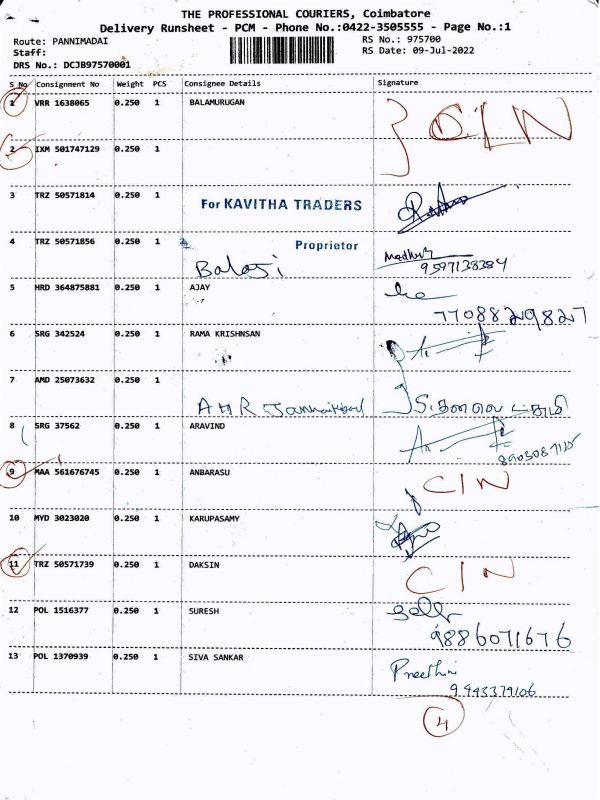 THE PROFESSIONAL COURIERS, Coimbatore
Delivery Runsheet - PCM - Phone No.:0422-3505555 - Page No.:1
Route: PANNIMADAI RS No.: 975700
Staff: RS Date: 09-Jul-2022
DRS No.: DCJB97570001
S No Consignment No Weight PCS Consignee Details Signature
1 VRR 1638065 0.250 1 BALAMURUGAN
2 IXM 501747129 0.250 1
CIN
3 TRZ 50571814 0.250 1 For KAVITHA TRADERS
4 TRZ 50571856 0.250 1 Proprietor
Balaji 9597138384
5 HRD 364875881 0.250 1 AJAY
7708829827
6 SRG 342524 0.250 1 RAMA KRISHNSAN
7 AMD 25073632 0.250 1
8 SRG 37562 0.250 1 ARAVIND
9 MAA 561676745 0.250 1 ANBARASU CIN
10 MYD 3023020 0.250 1 KARUPASAMY
11 TRZ 50571739 0.250 1 DAKSIN CIN
12 POL 1516377 0.250 1 SURESH
9886071676
13 POL 1370939 0.250 1 SIVA SANKAR Preethi
9943379106
4